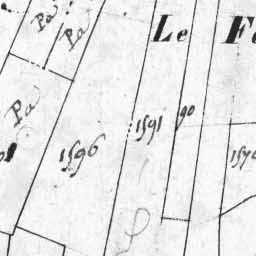 Pa
Pa
Le
Pa
1591
90
1596
157